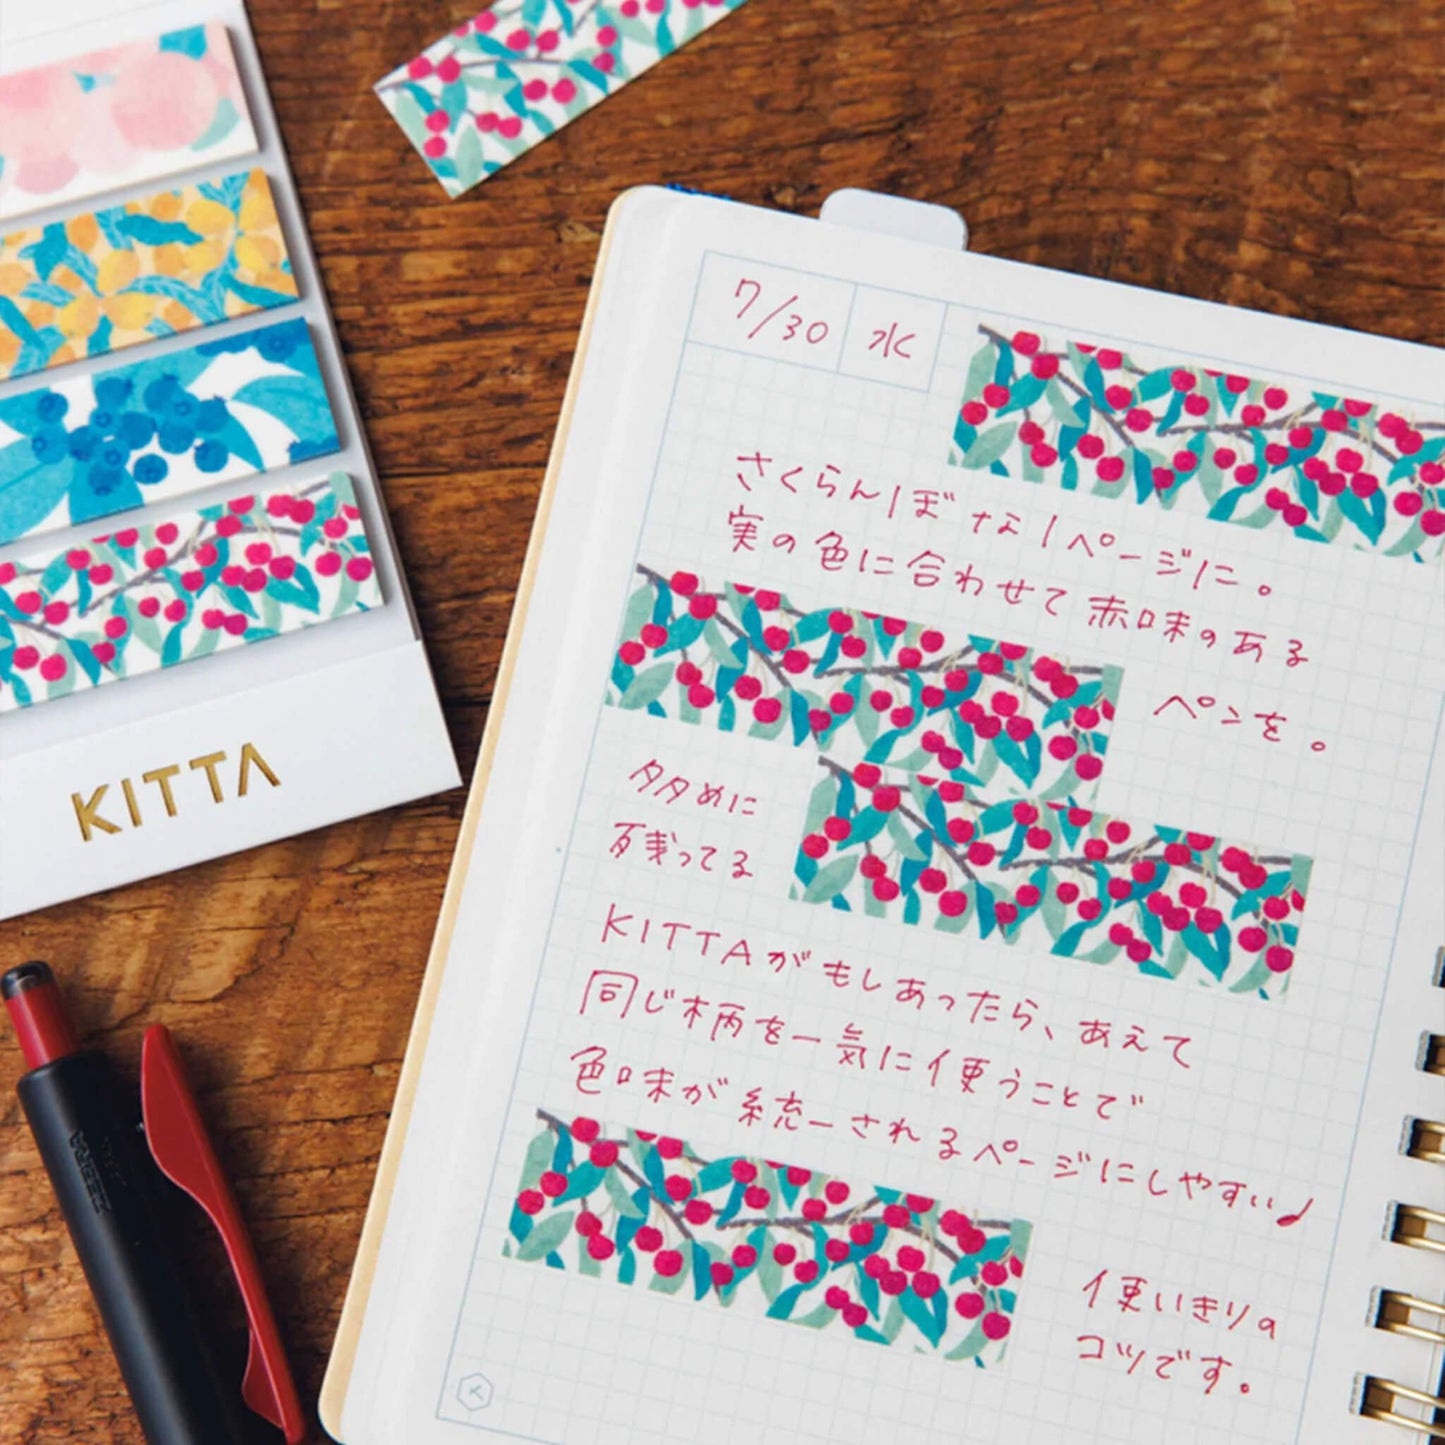 KITTA
7/30 水
さくらんぼな1ページに。
実の色に合わせて赤味のある
ペンを。
タタめに
残ってる
KITTAがもしあったら、あえて
同じ柄を一気に使うことで
色味が統一されるページにしやすい♪
使いきりの
コツです。